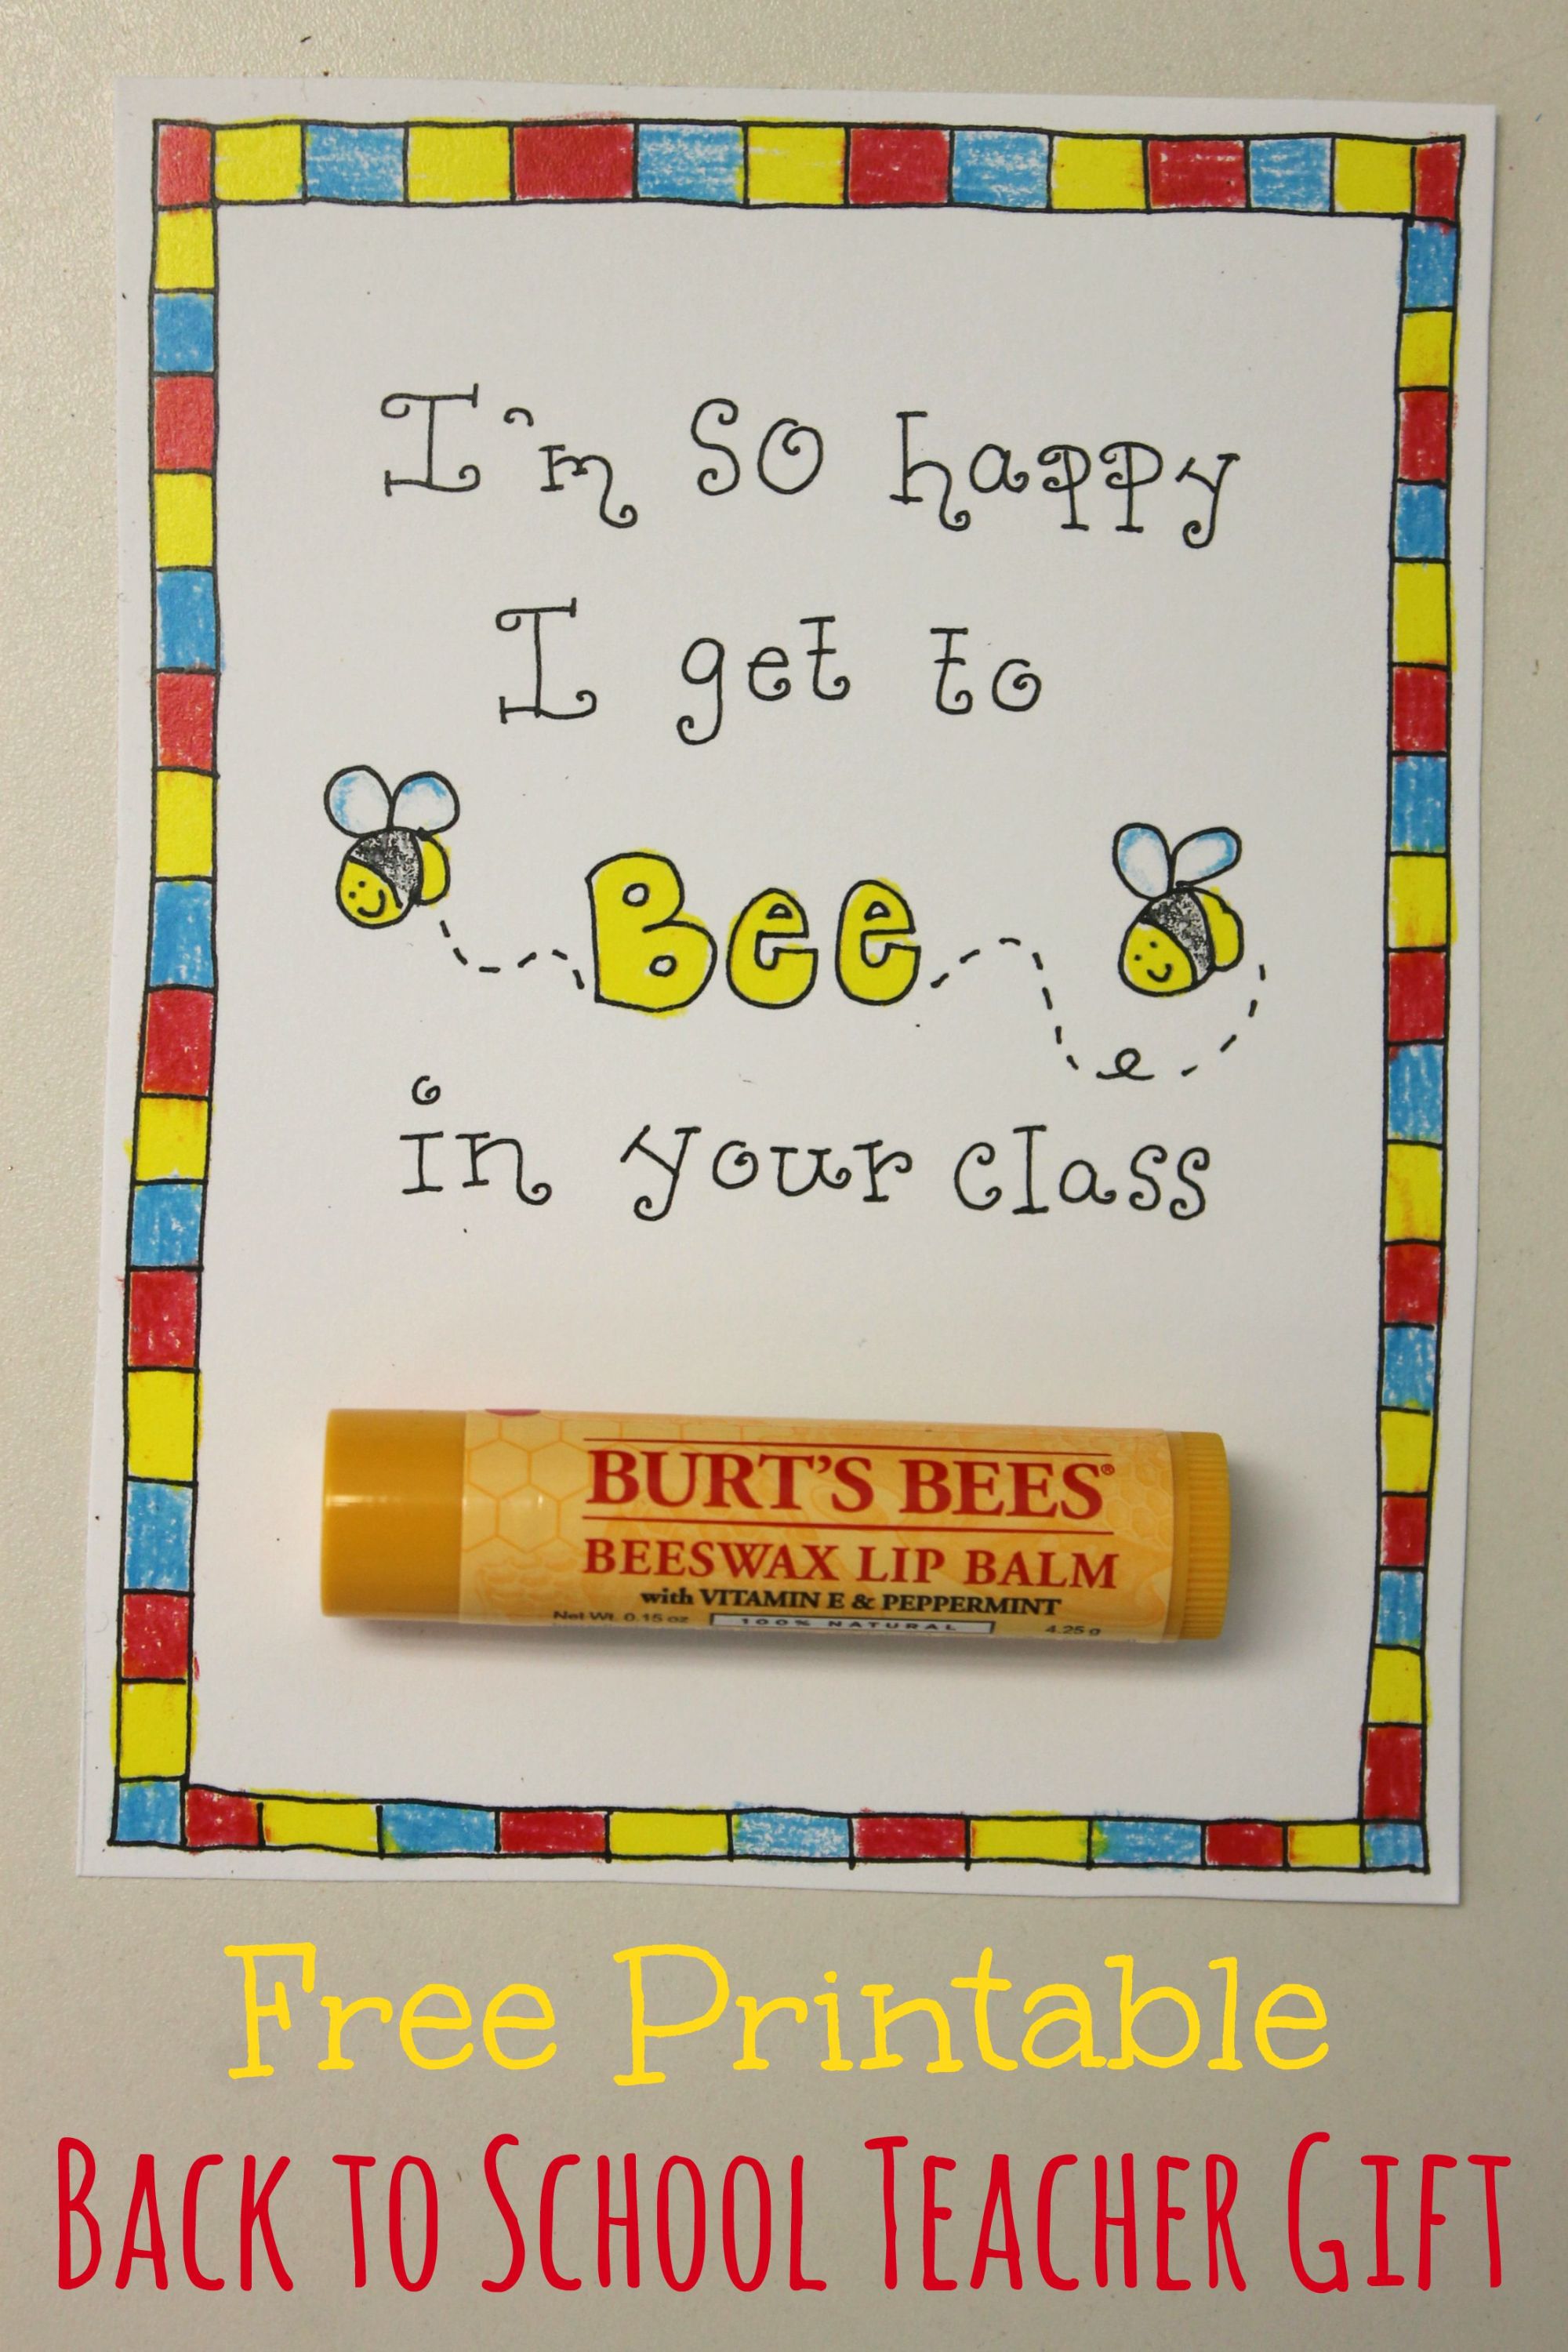 I'm SO happy
I get to
Bee
in your class
BURT'S BEES®
BEESWAX LIP BALM
with VITAMIN E & PEPPERMINT
Net Wt. 0.15 oz 100% NATURAL 4.25 g
Free Printable
BACK TO SCHOOL TEACHER GIFT